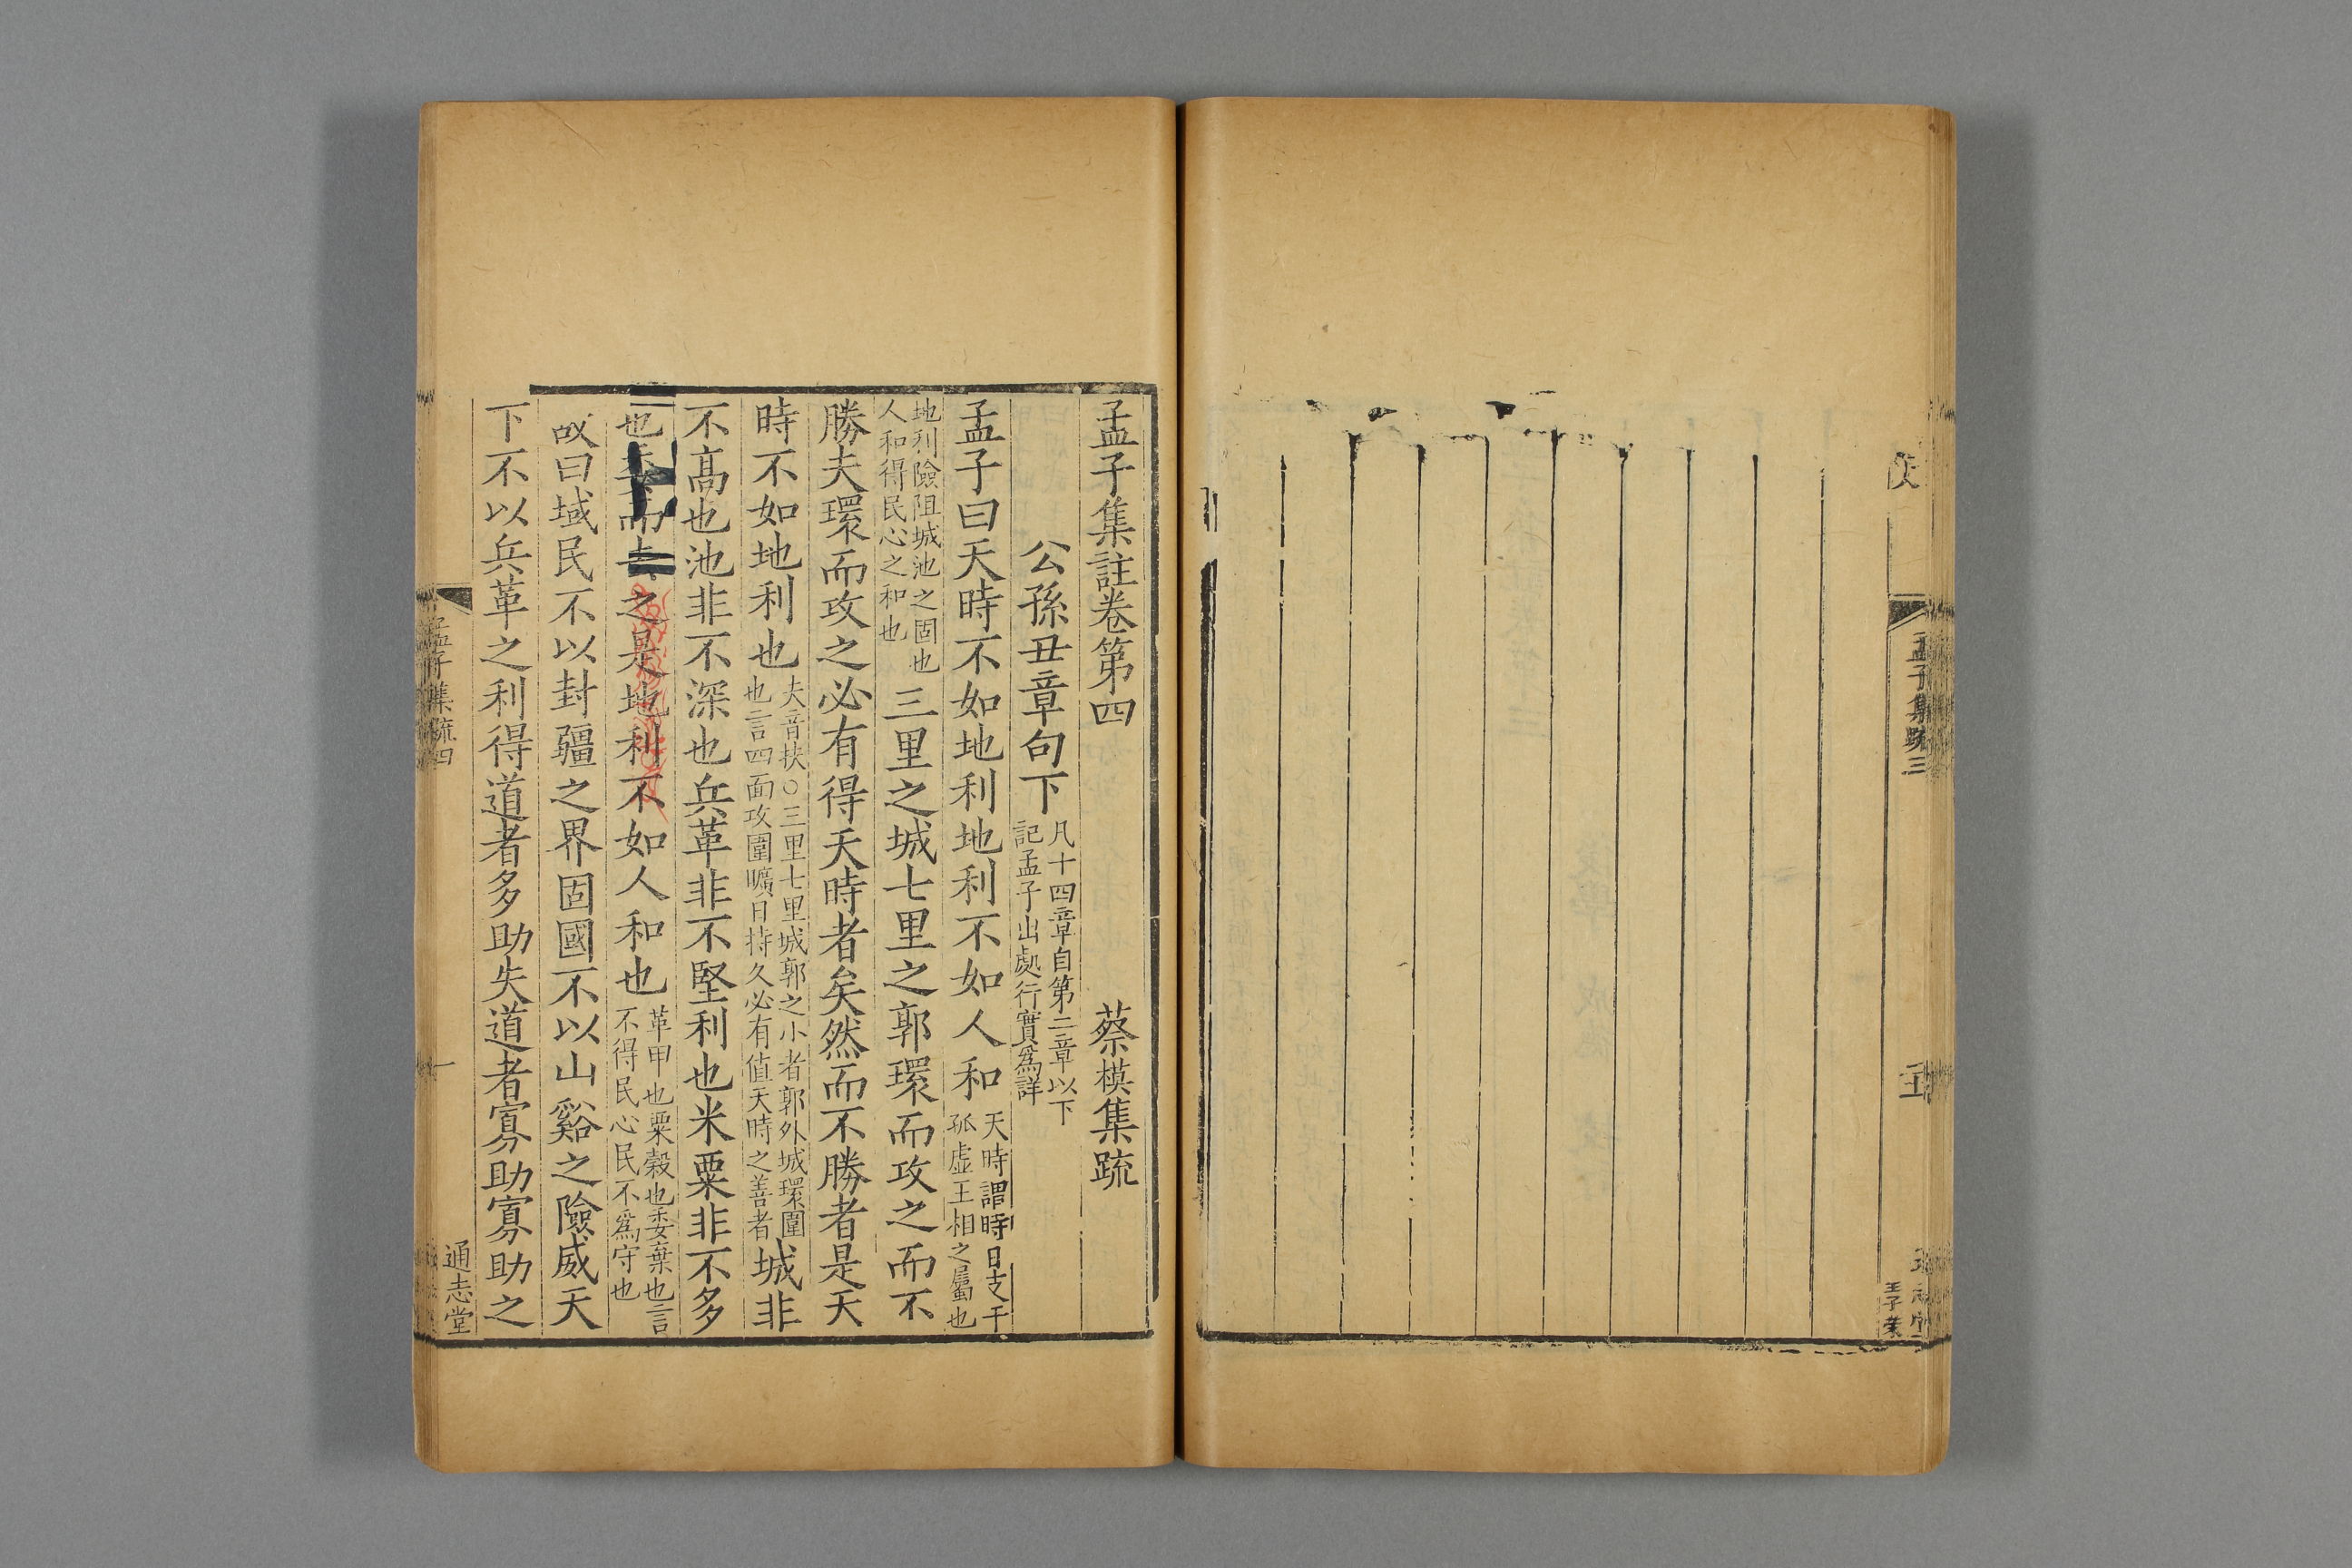 孟子集疏三
王子業
孟子集註卷第四
蔡模集疏
公孫丑章句下
凡十四章自第二章以下
記孟子出處行實爲詳
孟子曰天時不如地利地利不如人和
天時謂時日支干
孤虛王相之屬也
地利險阻城池之固也
人和得民心之和也
三里之城七里之郭環而攻之而不
勝夫環而攻之必有得天時者矣然而不勝者是天
時不如地利也
夫音扶○三里七里城郭之小者郭外城環圍
也言四面攻圍曠日持久必有值天時之善者
城非
不高也池非不深也兵革非不堅利也米粟非不多
也委而去之是地利不如人和也
革甲也粟穀也委棄也言
不得民心民不爲守也
故曰域民不以封疆之界固國不以山谿之險威天
下不以兵革之利得道者多助失道者寡助寡助之
孟子集疏四
一
通志堂